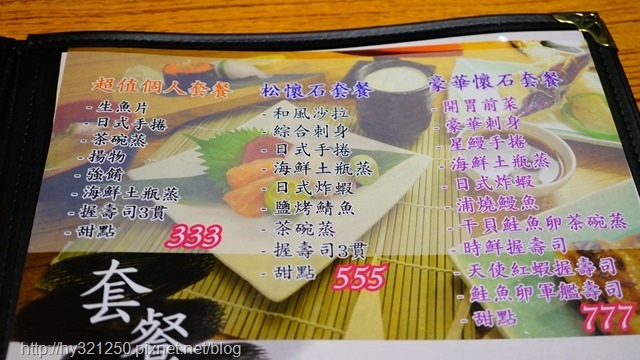 超值個人套餐
- 生魚片
- 日式手捲
- 茶碗蒸
- 揚物
- 強餚
- 海鮮土瓶蒸
- 握壽司3貫
- 甜點
333
松懷石套餐
- 和風沙拉
- 綜合刺身
- 日式手捲
- 海鮮土瓶蒸
- 日式炸蝦
- 鹽烤鯖魚
- 茶碗蒸
- 握壽司3貫
- 甜點
555
豪華懷石套餐
- 開胃前菜
- 豪華刺身
- 星鰻手捲
- 海鮮土瓶蒸
- 日式炸蝦
- 蒲燒鰻魚
- 干貝鮭魚卵茶碗蒸
- 時鮮握壽司
- 天使紅蝦握壽司
- 鮭魚卵軍艦壽司
- 甜點
777
套餐
http://hy321250.pixnet.net/blog